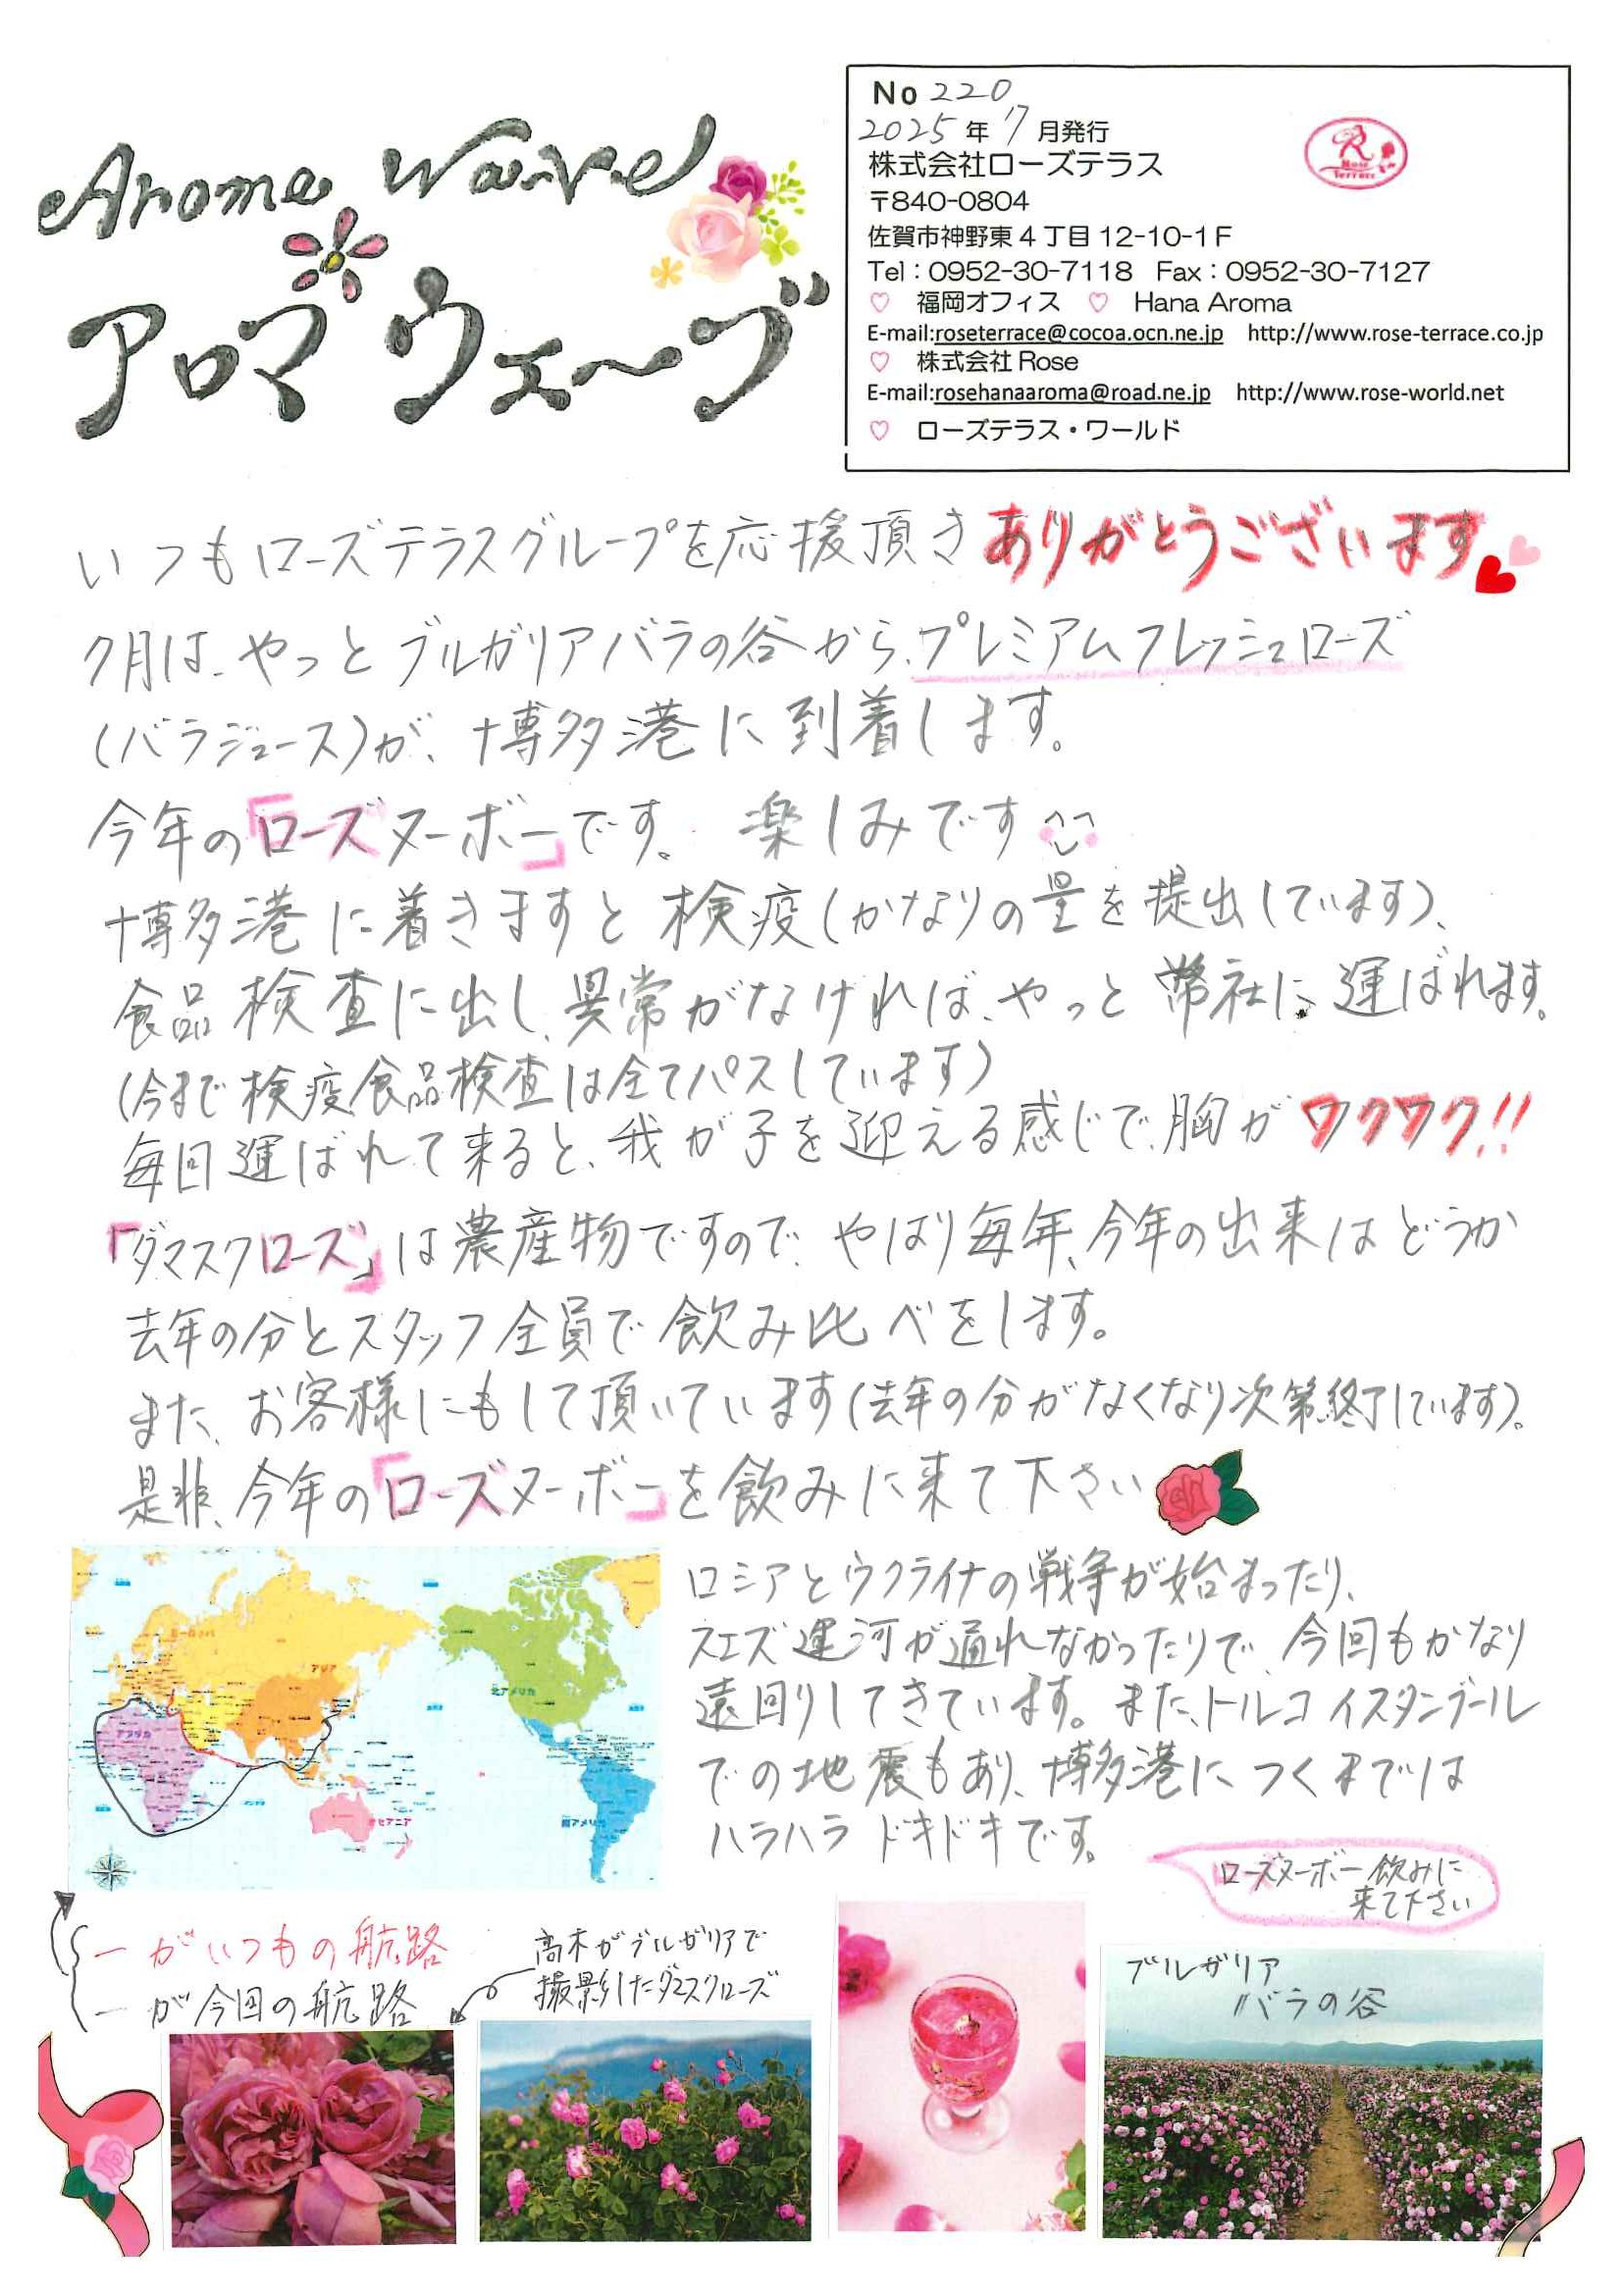 Arome Wave
アロマウェ〜ブ
No 220
2025年7月発行
株式会社ローズテラス
〒840-0804
佐賀市神野東4丁目12-10-1F
Tel：0952-30-7118 Fax：0952-30-7127
♡ 福岡オフィス ♡ Hana Aroma
E-mail:roseterrace@cocoa.ocn.ne.jp http://www.rose-terrace.co.jp
♡ 株式会社Rose
E-mail:rosehanaaroma@road.ne.jp http://www.rose-world.net
♡ ローズテラス・ワールド
R Rose Terrace
いつもローズテラスグループを応援頂きありがとうございます
7月は、やっとブルガリアバラの谷から、プレミアムフレッシュローズ
(バラジュース)が、博多港に到着します。
今年の「ローズヌーボー」です。楽しみです
博多港に着きますと検疫(かなりの量を提出しています)、
食品検査に出し、異常がなければ、やっと弊社に運ばれます。
(今まで検疫、食品検査は全てパスしています)
毎回運ばれて来ると、我が子を迎える感じで、胸がワクワク!!
「ダマスクローズ」は農産物ですので、やはり毎年、今年の出来はどうか
去年の分とスタッフ全員で飲み比べをします。
また、お客様にもして頂いています(去年の分がなくなり次第終了しています)。
是非、今年の「ローズヌーボー」を飲みに来て下さい
ロシアとウクライナの戦争が始まったり、
スエズ運河が通れなかったりで、今回もかなり
遠回りしてきています。また、トルコ イスタンブール
での地震もあり、博多港につくまでは
ハラハラドキドキです。
ヨーロッパ
アジア
アフリカ
北アメリカ
オセアニア
南アメリカ
ローズヌーボー飲みに
来て下さい
ーがいつもの航路
ーが今回の航路
高木がブルガリアで
撮影したダマスクローズ
ブルガリア
バラの谷